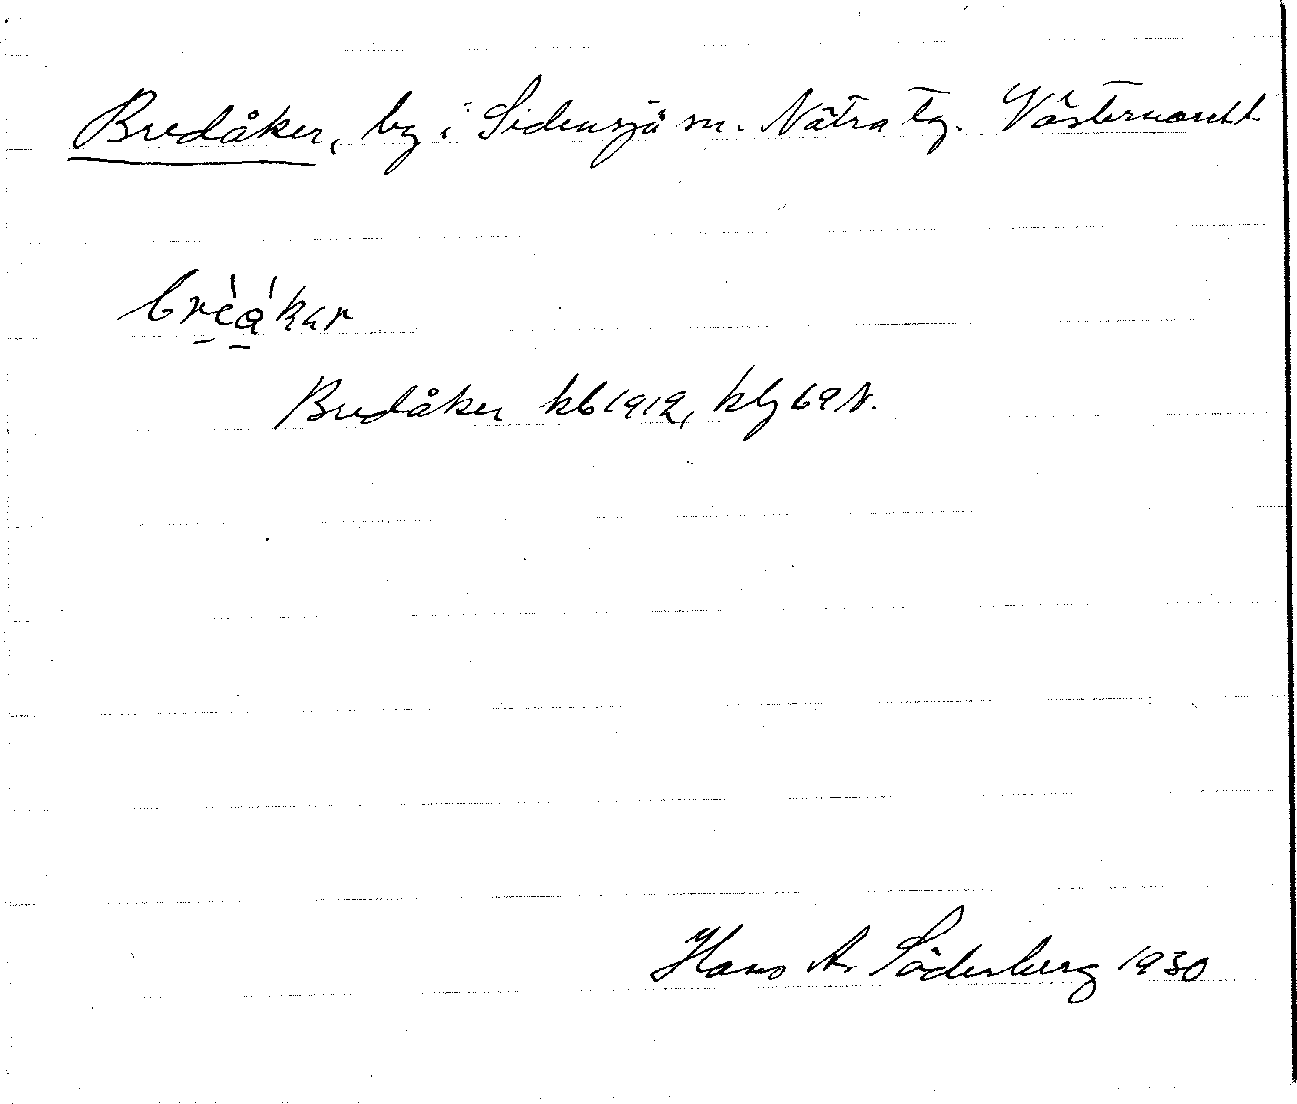 Bredåker, by i Sidensjö sn. Nätra tg. Västernorrl.
Bredåker kb 1912, klj 69 N.
Hans A. Söderberg 1930